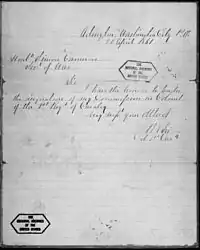 Arlington, Washington City P.O.
20 April 1861
Honble Simon Cameron
Secy of War
Sir
I have the honor to tender
the resignation of my Commission as Colonel
of the 1st Regt of Cavalry
Very resply your Obt Servt
R E Lee
Col 1st Cavy
THE
NATIONAL ARCHIVES
OF THE
UNITED STATES
THE
NATIONAL ARCHIVES
OF THE
UNITED STATES